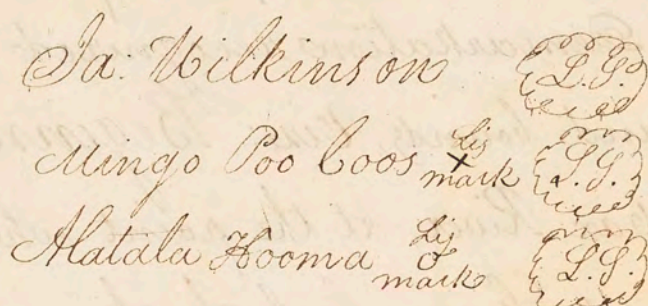 Ja: Wilkinson L.S.
Mingo Poo Coos his x mark L.S.
Alatala Hooma his o mark L.S.